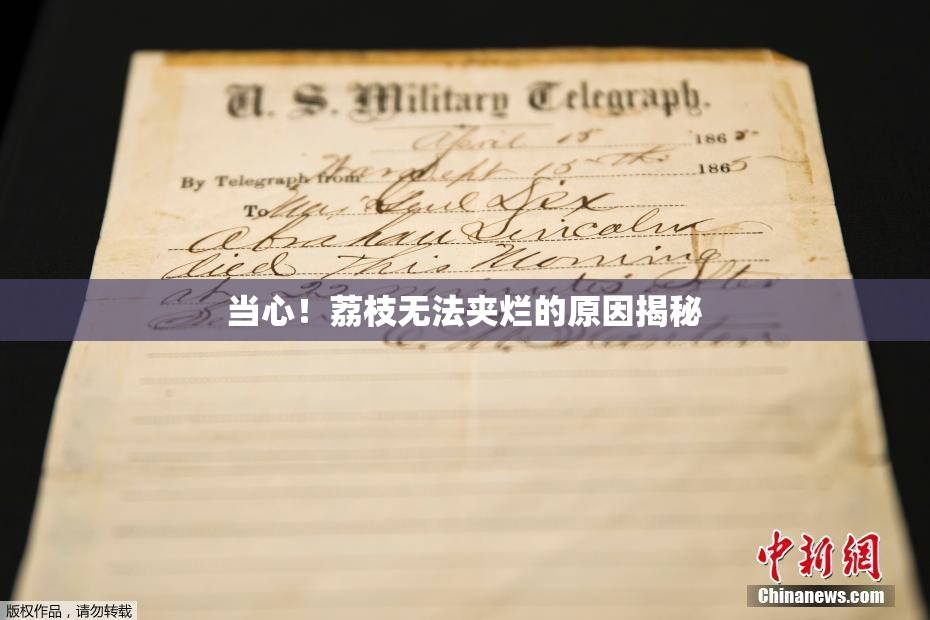 U. S. Military Telegraph.
April 15 1865
By Telegraph from War Dept 15th 1865
To Maj Genl Dix
Abraham Lincoln
died This Morning
at 22 minutes after
当心！荔枝无法夹烂的原因揭秘
中新网
Chinanews.com
版权作品，请勿转载